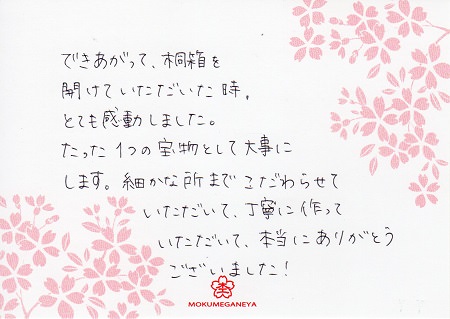 できあがって、桐箱を
開けていただいた時、
とても感動しました。
たった1つの宝物として大事に
します。細かな所までこだわらせて
いただいて、丁寧に作って
いただいて、本当にありがとう
ございました!
MOKUMEGANEYA